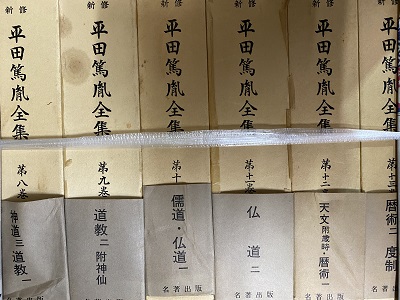 新修
平田篤胤全集
第八巻
神道三 道教一
新修
平田篤胤全集
第九巻
道教二 附神仙
名著出版
新修
平田篤胤全集
第十
儒道・仏道一
名著出版
新修
平田篤胤全集
第十一巻
仏道二
名著出版
新修
平田篤胤全集
第十二巻
天文 附歳時・暦術一
名著出版
新修
平田篤胤全集
第十三
暦術二 度制